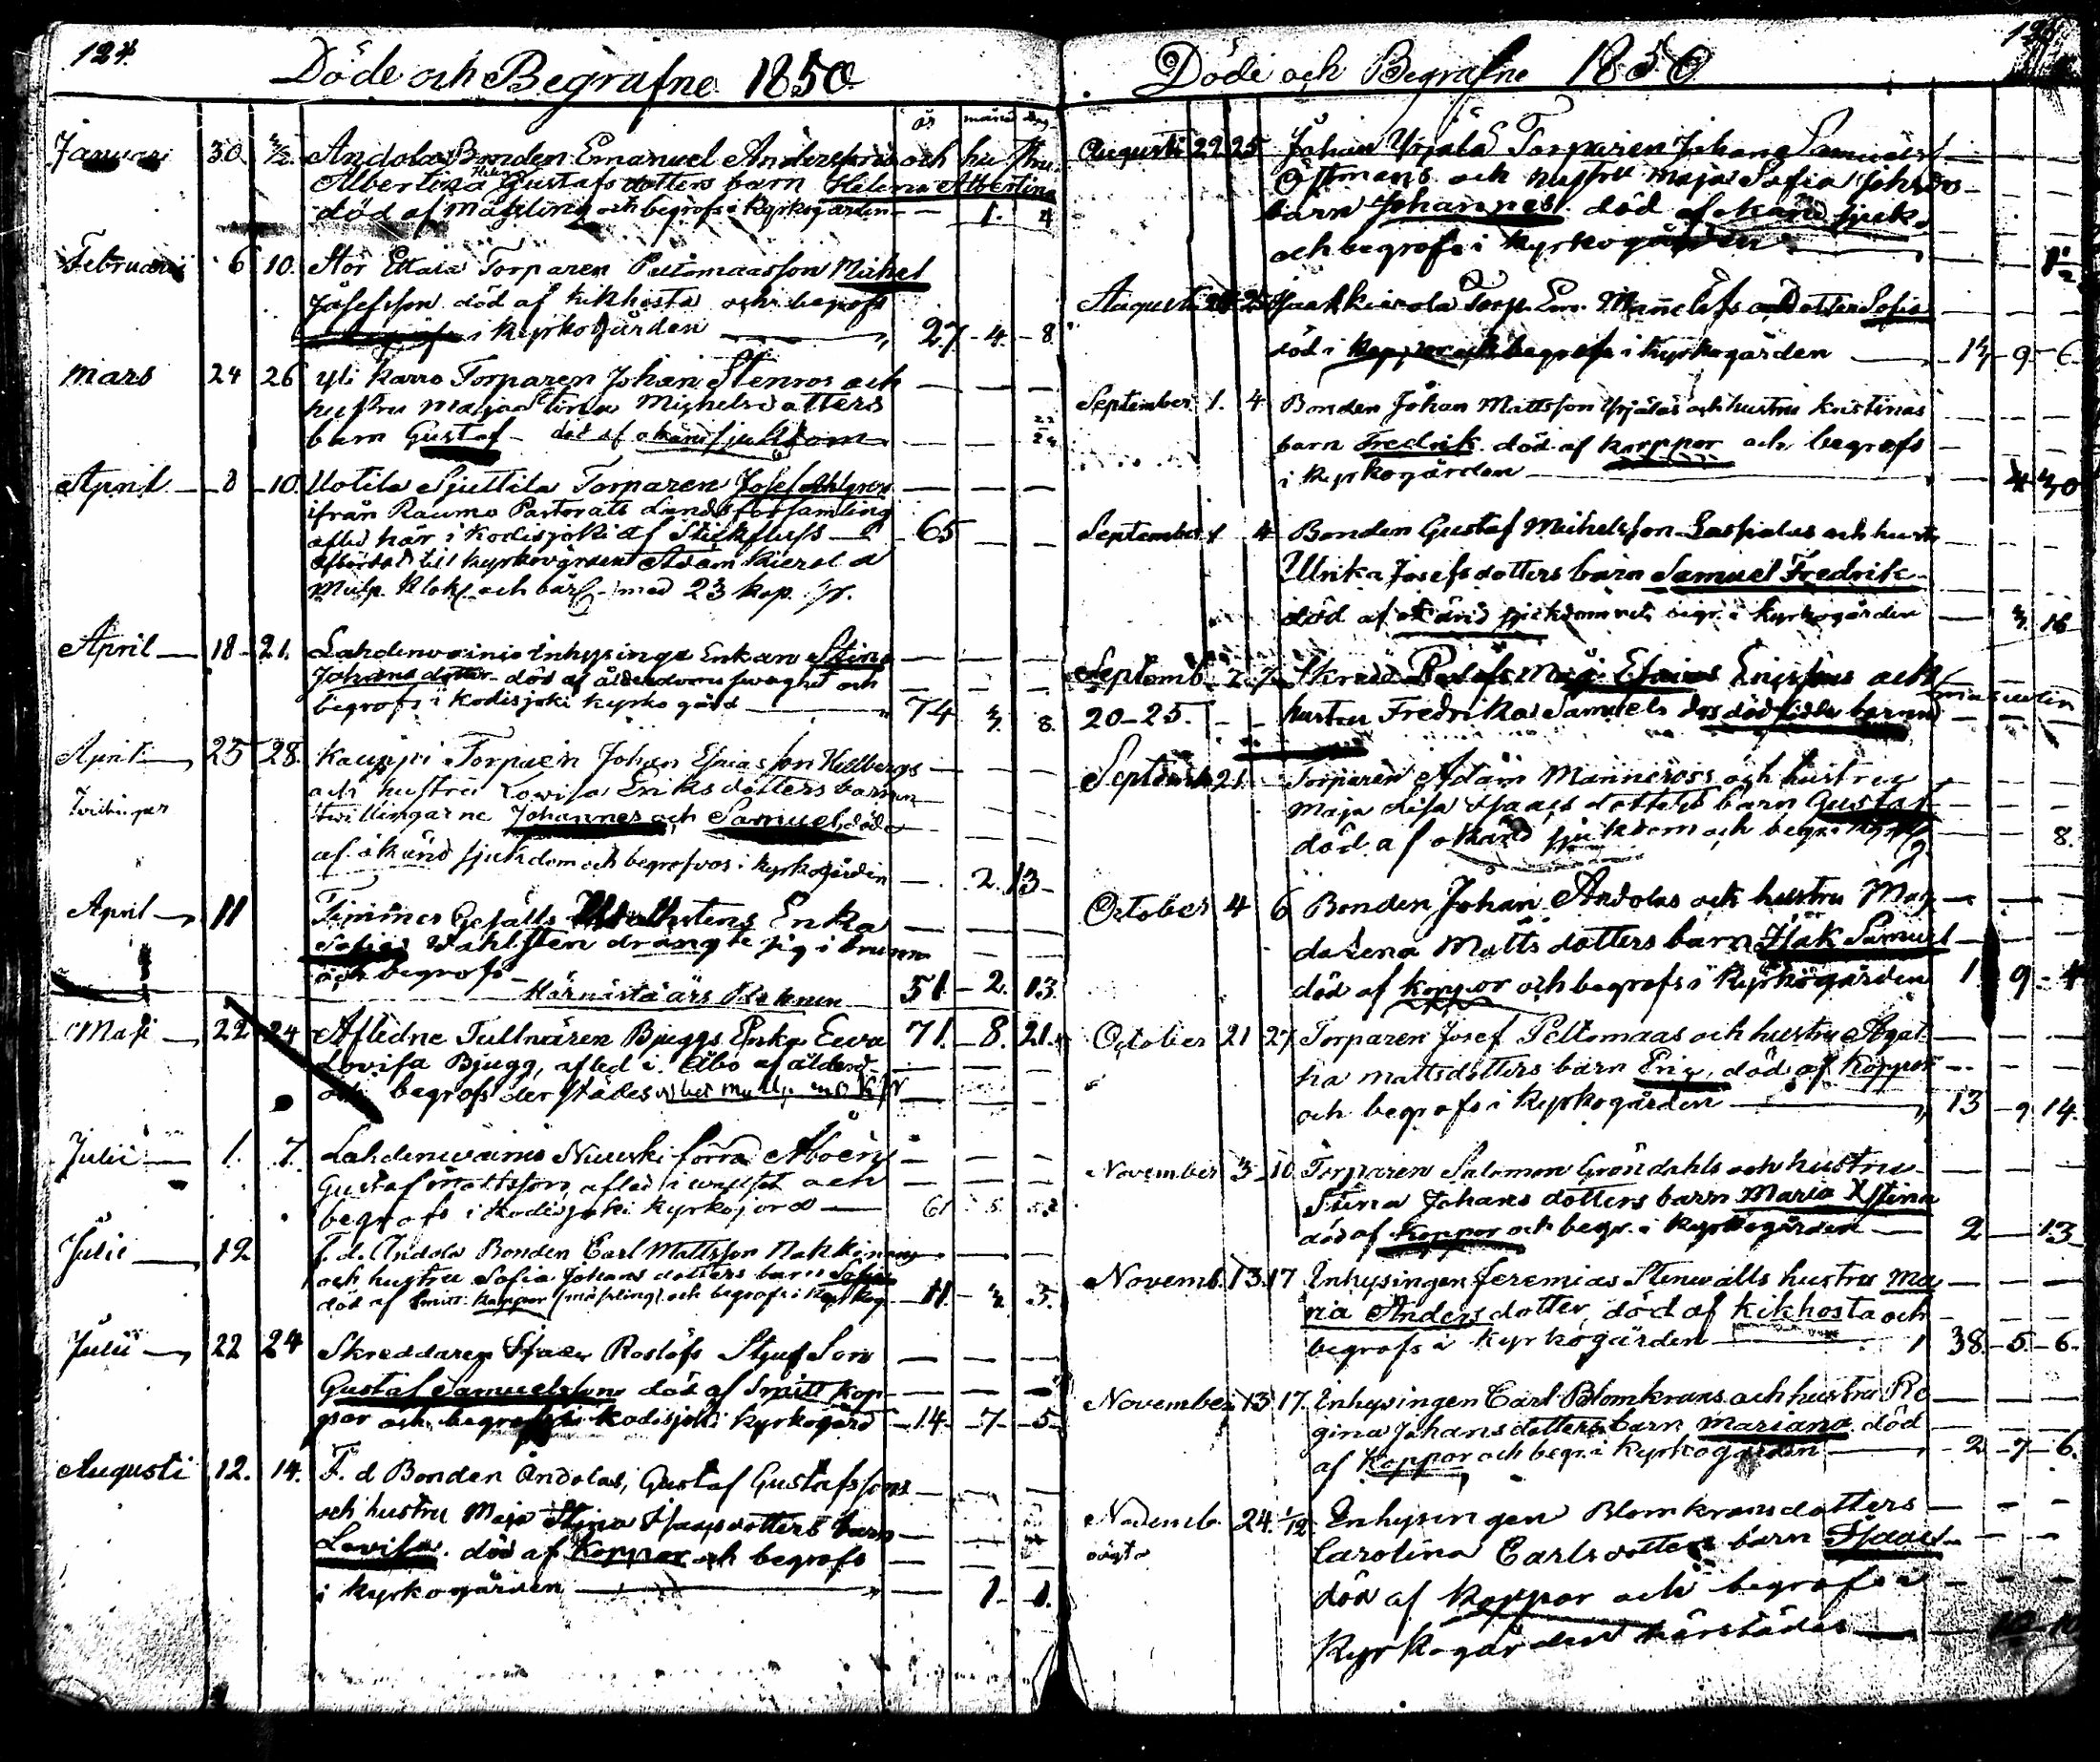 124.
Döde och Begrafne 1850
år månad dag
Januari 30. 3/2. Andola Bonden Emanuel Anderssons och hustru
Albertina Helena Gustafs dotters barn Helena Albertina
död af Mässling och begrofs i Kyrkogården — 1. 4
Februari 6 10. Stor Ettala Torparen Peltomaasson Michel
Josefsson död af kikhosta och begrofs
i Kyrkogården — 27 - 4 - 8
Mars 24 26 Yli Karro Torparen Johan Stenros och
hustru Maja Stina Michelsdotters
barn Gustaf - död af okänd sjukdom 22/24
April 8 10. Uotila Sjuttila Torparen Josef Ahlgren
ifrån Raumo Pastorats Landsförsamling
afled här i Kodisjoki af Stickfluss — 65
afbördad till kyrkovärden Adam Kierola
Mulp. Klok. och bår. med 23 kop. Sr.
April 18 21. Lahdenvainio Inhysinge Enkan Stina
Johans dotter död af ålderdoms svaghet och
begrofs i Kodisjoki kyrkogård — 74 3. 8.
April 25 28. Kauppi Torparen Johan Esaiasson Hellbergs
Tvillingar och hustru Lovisa Eriksdotters barn
tvillingarne Johannes och Samuel, död
af okänd sjukdom och begrofvos i kyrkogården — 2. 13
April 11 Timmer Gesälls Wahlstens Enka
Sofia Wahlsten drängte sig i brunn
och begrofs — 51. 2. 13.
Härnästa års Räknin
Maji 22 24 Afledne Tullnären Bjuggs Enka Eeva 71. 8. 21.
Lovisa Bjugg, afled i Åbo af ålderd.
och begrofs derstädes
Julii 1. 7. Lahdenvainio Niuuski förra Åboen
Gustaf Mattsson, afled i wattsot och
begrofs i Kodisjoki kyrkojord — 61
Julii 12 F. d. Andola Bonden Carl Mattsson Nakkinens
och hustru Sofia Johans dotters barn Sofia
död af Smitt Koppor (mässling) och begrofs i Kyrkog. 11. 3. 5.
Julii 22 24 Skreddaren Isaac Roslöfs Stjuf Son
Gustaf Samuelsson död af Smitt kop-
por och begrofs i Kodisjoki kyrkogård — 14 - 7 - 5
Augusti 12. 14. F. d Bonden Andolas, Gustaf Gustafssons
och hustru Maja Stina Isaacsdotters barn
Lovisa. död af Koppor och begrofs
i kyrkogården — 1 - 1.
Döde och Begrafne 1850
Augusti 22 25 Johan Yrjälä Torparen Johan Samuels
Östmans och hustru Maja Sofia Johans
barn Johannes död af okänd sjuk.
och begrofs i kyrkogården
Augusti 25 Jaakkierola Torp. Em. Mannelöfs Dotter Sofia
död i Koppor och begrofs i Kyrkogården — 14 - 9 - 6
September 1. 4 Bonden Johan Mattsson Yrjälas och hustru Kristinas
barn Fredrik död af koppor och begrofs
i kyrkogården
September 1 4 Bonden Gustaf Michelsson Laspialas och hustr.
Ulrika Josefsdotters barn Samuel Fredrik
död af okänd sjukdom och begr. i Kyrkogården — 3. 16
Septemb. 2. 7. Skredd. Esaias Ericssons och
20-25. hustru Fredrika Samuels dödfödda barn masculin
Septemb. 21. Torparen Adam Manneross och hustru
Maja Lisa Isaacs dotters barn Gustaf
död af okänd sjukdom och begr. i Kyrkog — 8.
October 4 6 Bonden Johan Andolas och hustru Mag-
dalena Matts dotters barn Isak Samuel
död af koppor och begrofs i Kyrkogården 1 9 - 4
October 21 27 Torparen Josef Peltomaas och hustru Agat-
ha Mattsdotters barn Eric, död af Koppor
och begrofs i Kyrkogården — 13 - 9 14.
November 3 10 Torparen Salomon Gröndahls och hustru
Stina Johans dotters barn Maria Xstina
död af Koppor och begr. i Kyrkogården — 2 — 13
Novemb. 13. 17 Inhysingen Jeremias Stenvalls hustru Ma-
ria Anders dotter, död af kikhosta och
begrofs i Kyrkogården — 38. - 5. - 6.
November 13 17. Inhysingen Carl Blomkrans och hustru Re
gina Johansdotters barn Mariana död
af Koppor och begr. i Kyrkogården — 2 - 7 - 6.
Novemb. 24. 1/12 Inhysingen Blomkransdotters
oägta Carolina Carlsdotters barn Isaac
död af Koppor och begrofs i
Kyrkogården härstädes